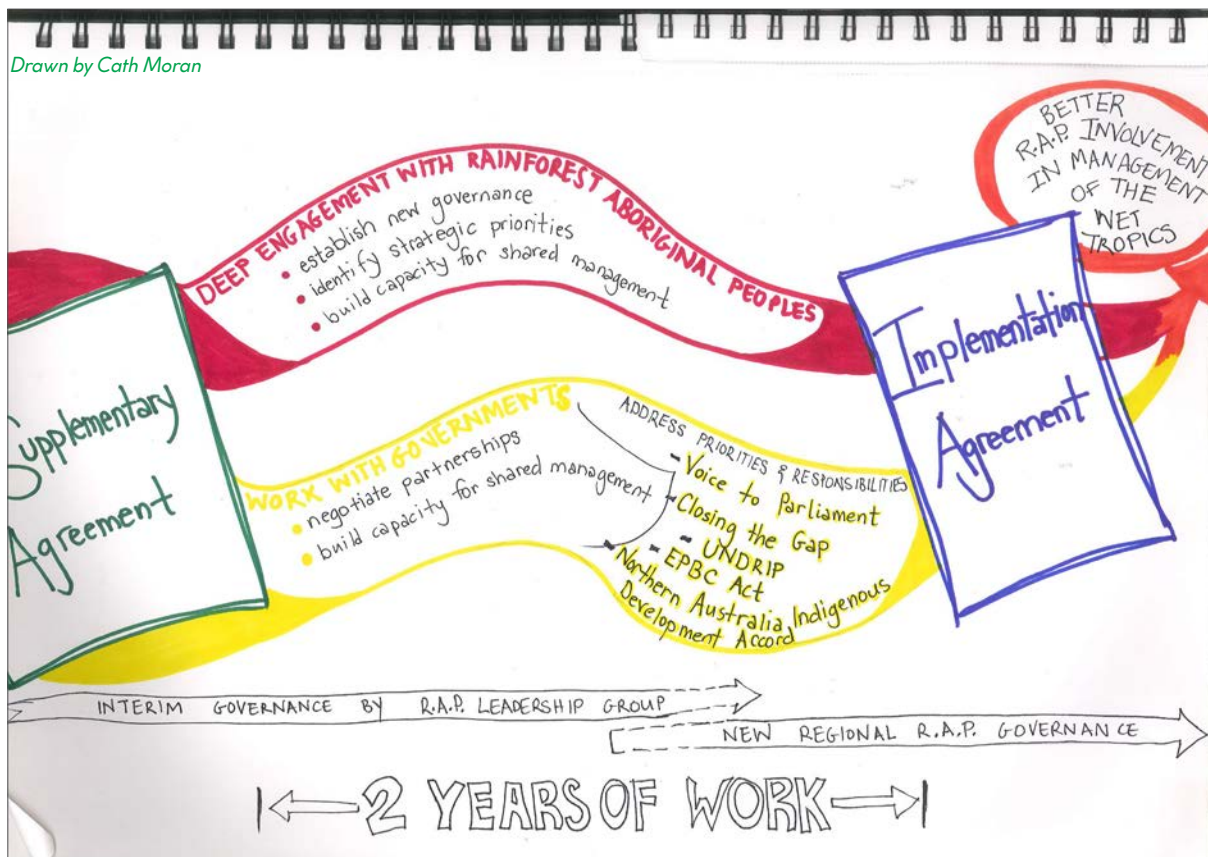 Drawn by Cath Moran
BETTER
R.A.P. INVOLVEMENT
IN MANAGEMENT
OF THE
WET
TROPICS
DEEP ENGAGEMENT WITH RAINFOREST ABORIGINAL PEOPLES
• establish new governance
• identify strategic priorities
• build capacity for shared management
Supplementary
Agreement
Implementation
Agreement
WORK WITH GOVERNMENTS
• negotiate partnerships
• build capacity for shared management
ADDRESS PRIORITIES & RESPONSIBILITIES
- Voice to Parliament
- Closing the Gap
- UNDRIP
- EPBC Act
- Northern Australia Indigenous
Development Accord
INTERIM GOVERNANCE BY R.A.P. LEADERSHIP GROUP
NEW REGIONAL R.A.P. GOVERNANCE
2 YEARS OF WORK